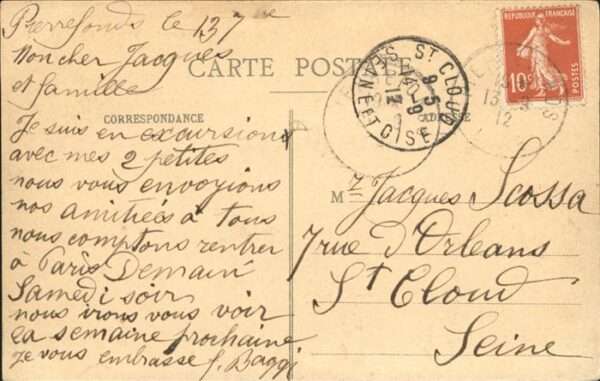 Pierrefonds le 13 7bre
Mon cher Jacques
et famille
CARTE POSTALE
CORRESPONDANCE
ADRESSE
Je suis en excursion
avec mes 2 petites
nous vous envoyions
nos amitiées à tous
nous comptons rentrer
à Paris Demain
Samedi soir
nous irons vous voir
la semaine prochaine
Je vous embrasse J. Baggi
REPUBLIQUE FRANÇAISE
10c
ST CLOUD
9-5
12
SEINE ET OISE
13-9
12
Mr Jacques Scossa
7 rue d'Orleans
St Cloud
Seine